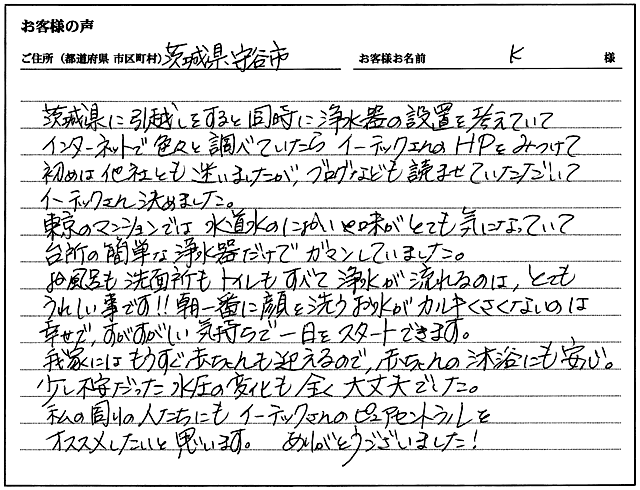 お客様の声
ご住所（都道府県 市区町村） 茨城県守谷市 お客様お名前 K 様
茨城県に引越しをすると同時に浄水器の設置を考えていて
インターネットで色々と調べていたら イーテックさんのHPをみつけて
初めは他社とも迷いましたが、ブログなども読ませていただいて
イーテックさんに決めました。
東京のマンションでは 水道水のにおいや味がとても気になっていて
台所の簡単な浄水器だけで ガマンしていました。
お風呂も 洗面所も トイレも すべて 浄水が 流れるのは、とても
うれしい事です!! 朝一番に顔を洗うお水が カルキくさくないのは
幸せで、すがすがしい 気持ちで 一日をスタートできます。
我家には もうすぐ赤ちゃんも迎えるので、赤ちゃんの 沐浴にも 安心。
少し不安だった 水圧の変化も 全く 大丈夫でした。
私の周りの人たちにも イーテックさんのピュアセントラルを
オススメしたいと 思います。 ありがとうございました!